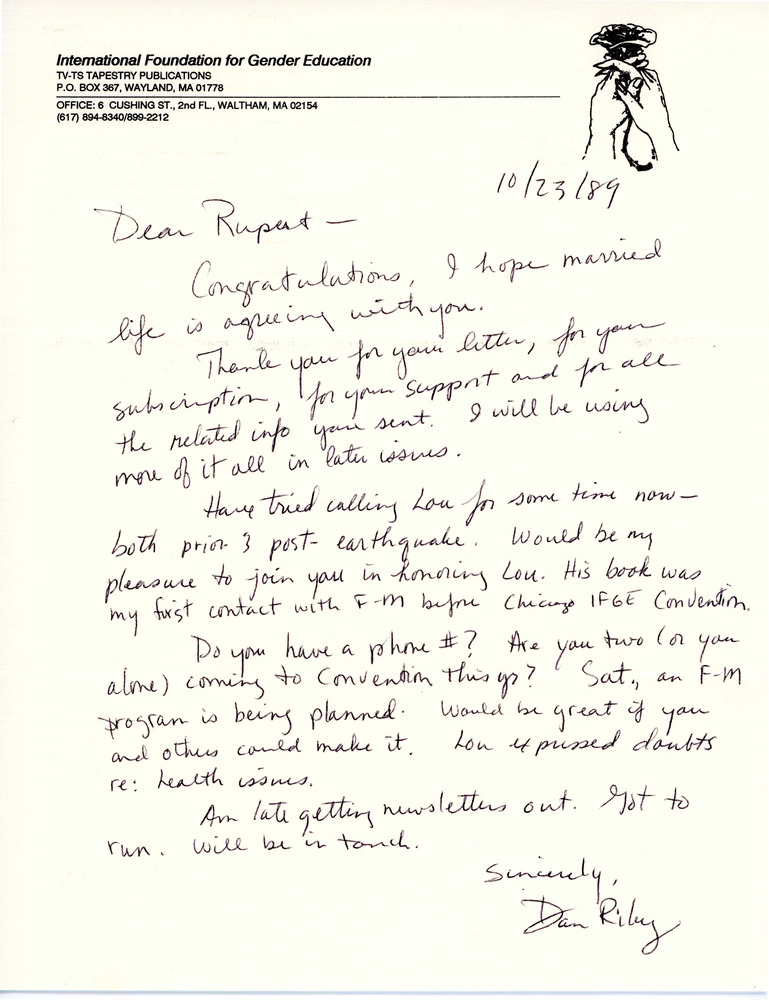 International Foundation for Gender Education
TV-TS TAPESTRY PUBLICATIONS
P.O. BOX 367, WAYLAND, MA 01778
OFFICE: 6 CUSHING ST., 2nd FL., WALTHAM, MA 02154
(617) 894-8340/899-2212
10/23/89
Dear Rupert —
Congratulations, I hope married
life is agreeing with you.
Thank you for your letter, for your
subscription, for your support and for all
the related info you sent. I will be using
more of it all in later issues.
Have tried calling Lou for some time now —
both prior & post- earthquake. Would be my
pleasure to join you in honoring Lou. His book was
my first contact with F-M before Chicago IFGE Convention.
Do you have a phone #? Are you two (or you
alone) coming to Convention this yr? Sat., an F-M
program is being planned. Would be great if you
and others could make it. Lou expressed doubts
re: health issues.
Am late getting newsletters out. Got to
run. Will be in touch.
Sincerely,
Dan Riley